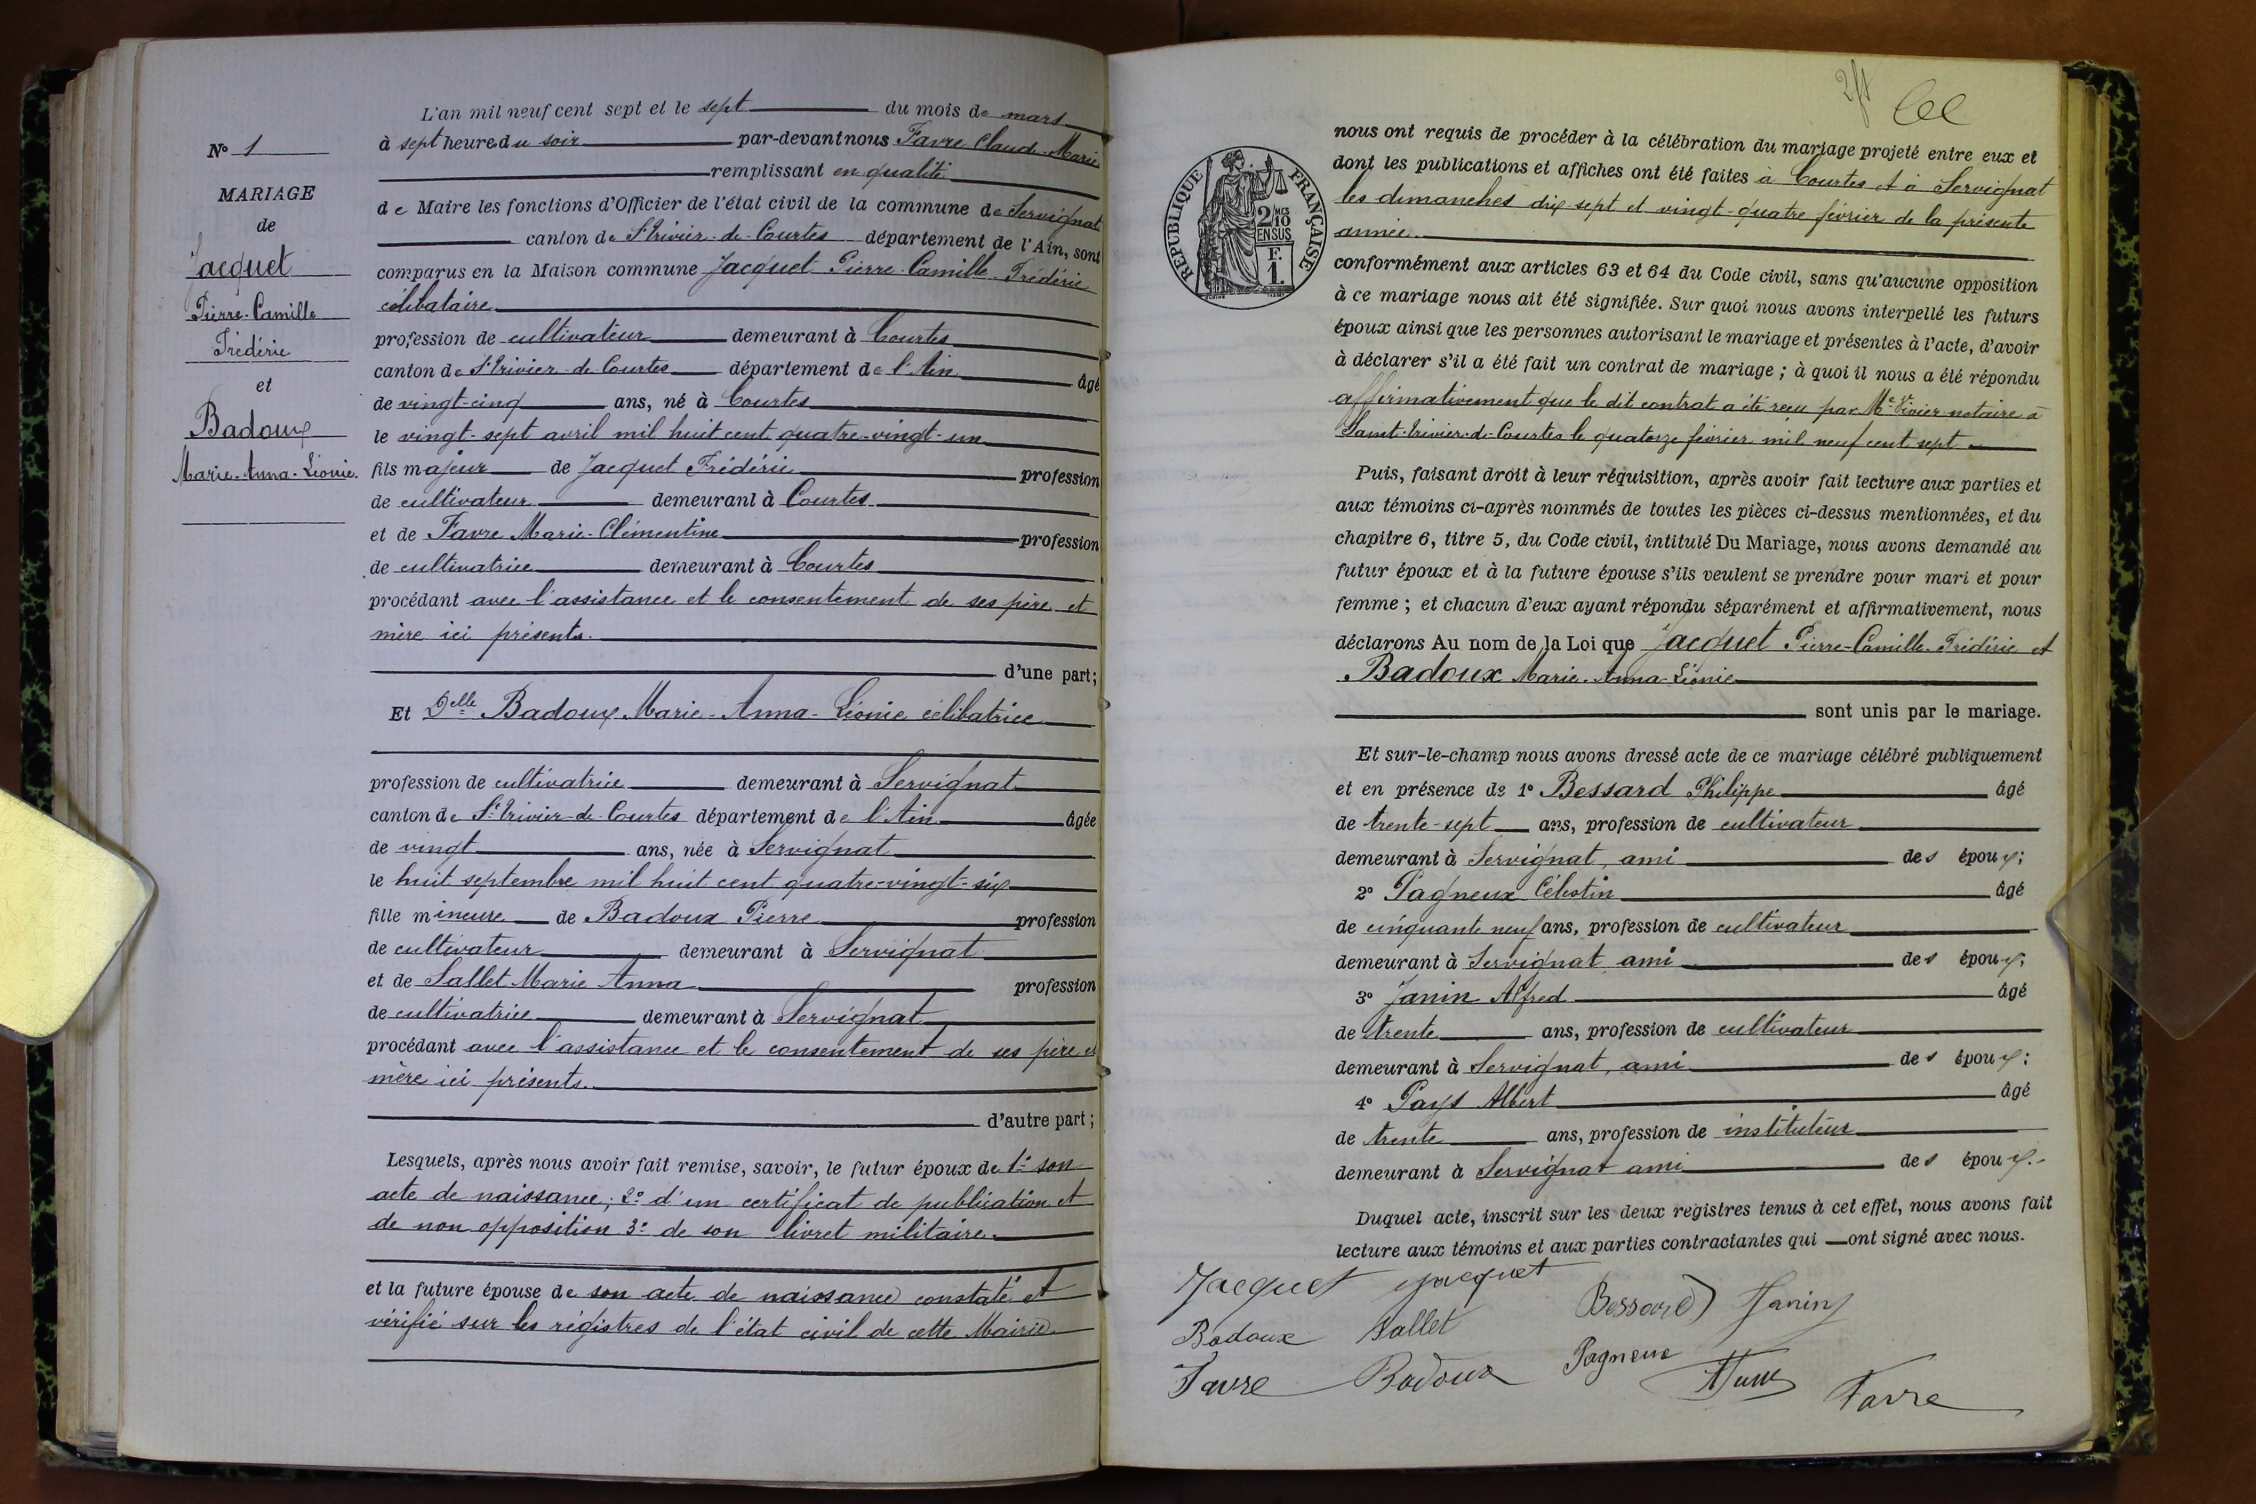 N° 1
MARIAGE
de
Jacquet
Pierre-Camille
Frédéric
et
Badoux
Marie-Anna-Léonie.
L'an mil neuf cent sept et le sept du mois de mars
à sept heures du soir par-devant nous Favre Claude-Marie
remplissant en qualité
de Maire les fonctions d'Officier de l'état civil de la commune de Servignat
canton de St Trivier-de-Courtes département de l'Ain, sont
comparus en la Maison commune Jacquet Pierre-Camille-Frédéric
célibataire
profession de cultivateur demeurant à Courtes
canton de St Trivier-de-Courtes département de l'Ain âgé
de vingt-cinq ans, né à Courtes
le vingt-sept avril mil huit cent quatre-vingt-un
fils majeur de Jacquet Frédéric profession
de cultivateur demeurant à Courtes
et de Favre Marie-Clémentine profession
de cultivatrice demeurant à Courtes
procédant avec l'assistance et le consentement de ses père et
mère ici présents.
d'une part;
Et Delle Badoux Marie-Anna-Léonie célibatrice
profession de cultivatrice demeurant à Servignat
canton de St Trivier-de-Courtes département de l'Ain âgée
de vingt ans, née à Servignat
le huit septembre mil huit cent quatre-vingt-six
fille mineure de Badoux Pierre profession
de cultivateur demeurant à Servignat
et de Sallet Marie Anna profession
de cultivatrice demeurant à Servignat
procédant avec l'assistance et le consentement de ses père et
mère ici présents.
d'autre part;
Lesquels, après nous avoir fait remise, savoir, le futur époux de 1° son
acte de naissance; 2° d'un certificat de publication et
de non opposition 3° de son livret militaire.
et la future épouse de son acte de naissance constaté et
vérifié sur les régistres de l'état civil de cette Mairie.
RÉPUBLIQUE FRANÇAISE
2/10 MES
EN SUS
F.
1.
nous ont requis de procéder à la célébration du mariage projeté entre eux et
dont les publications et affiches ont été faites à Courtes et à Servignat
les dimanches dix-sept et vingt-quatre février de la présente
année.
conformément aux articles 63 et 64 du Code civil, sans qu'aucune opposition
à ce mariage nous ait été signifiée. Sur quoi nous avons interpellé les futurs
époux ainsi que les personnes autorisant le mariage et présentes à l'acte, d'avoir
à déclarer s'il a été fait un contrat de mariage; à quoi il nous a été répondu
affirmativement que le dit contrat a été reçu par Me notaire à
Saint-Trivier-de-Courtes le quatorze février mil neuf cent sept.
Puis, faisant droit à leur réquisition, après avoir fait lecture aux parties et
aux témoins ci-après nommés de toutes les pièces ci-dessus mentionnées, et du
chapitre 6, titre 5, du Code civil, intitulé Du Mariage, nous avons demandé au
futur époux et à la future épouse s'ils veulent se prendre pour mari et pour
femme; et chacun d'eux ayant répondu séparément et affirmativement, nous
déclarons Au nom de la Loi que Jacquet Pierre-Camille-Frédéric et
Badoux Marie-Anna-Léonie
sont unis par le mariage.
Et sur-le-champ nous avons dressé acte de ce mariage célébré publiquement
et en présence de 1° Bessard Philippe âgé
de trente-sept ans, profession de cultivateur
demeurant à Servignat, ami des époux;
2° Pagneux Célestin âgé
de cinquante neuf ans, profession de cultivateur
demeurant à Servignat, ami des époux;
3° Janin Alfred âgé
de trente ans, profession de cultivateur
demeurant à Servignat, ami des époux;
4° Pays Albert âgé
de trente ans, profession de instituteur
demeurant à Servignat ami des époux.
Duquel acte, inscrit sur les deux registres tenus à cet effet, nous avons fait
lecture aux témoins et aux parties contractantes qui ont signé avec nous.
Jacquet Jacquet Bessard Janin
Badoux Sallet
Favre Badoux Pagneux Favre